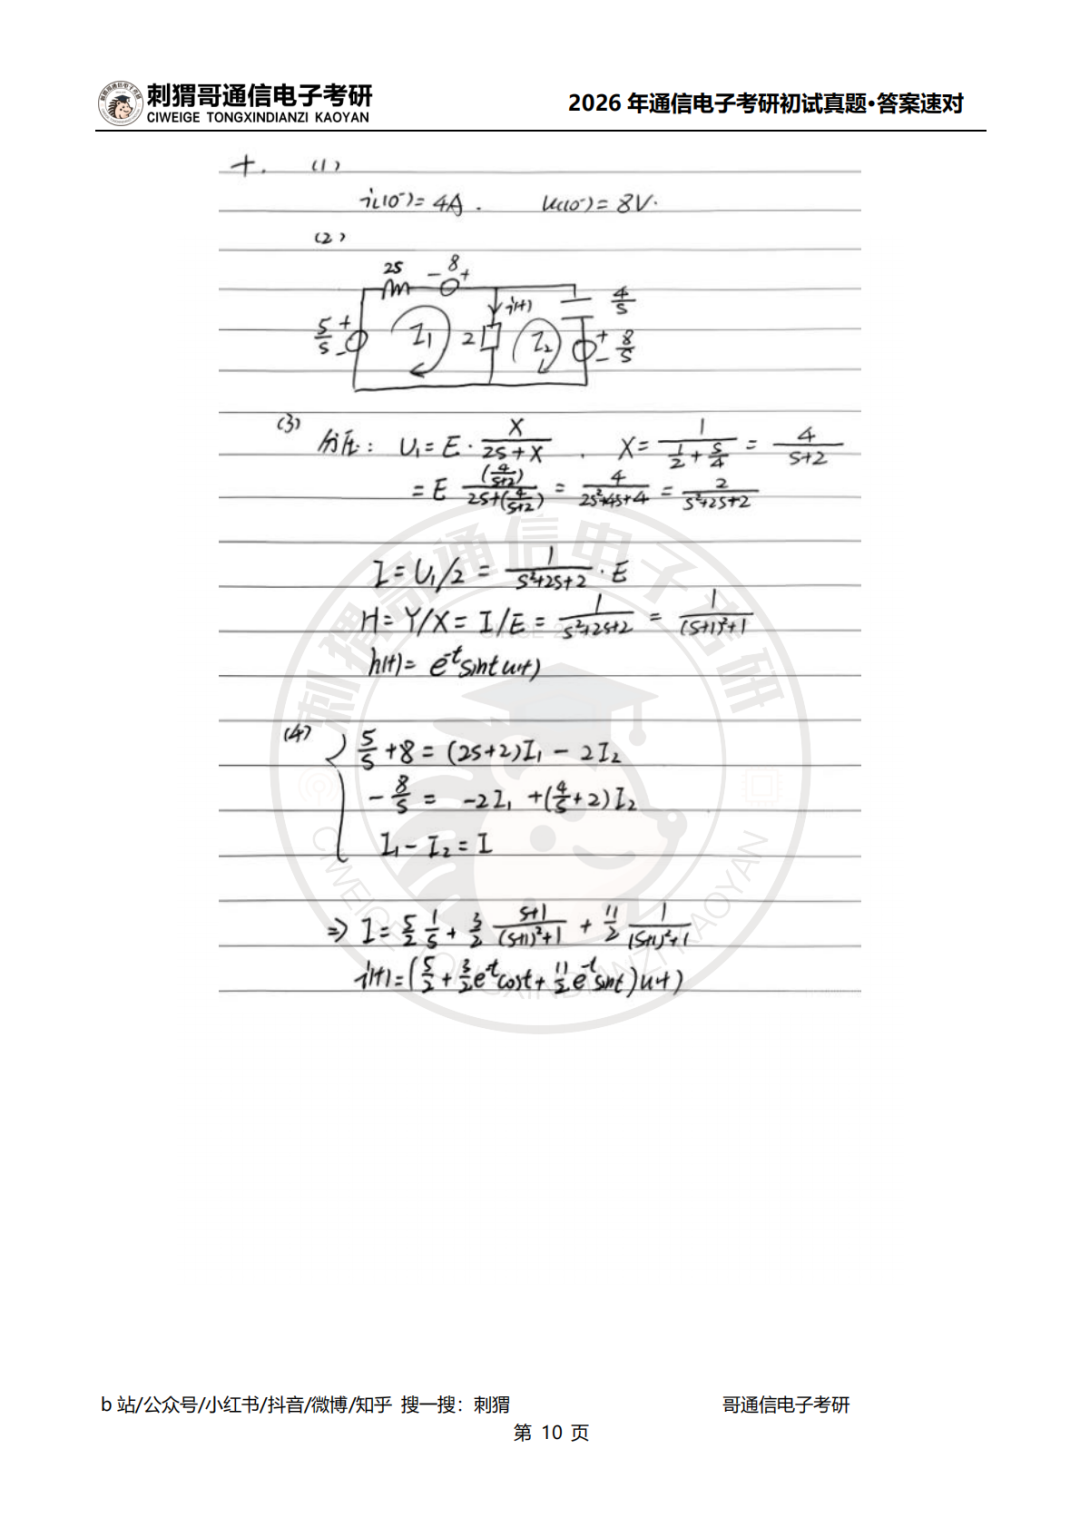 刺猬哥通信电子考研
CIWEIGE TONGXINDIANZI KAOYAN
2026 年通信电子考研初试真题•答案速对
十. (1)
iL(0⁻)= 4A . uc(0⁻)= 8V.
(2)
2S - 8 +
5/S + - I₁ 2 i(t) I₂ 4/S + - 8/S
(3) 分压: U₁ = E · X/(2S+X) . X = 1/(1/2 + S/4) = 4/(S+2)
= E (4/(S+2))/(2S+(4/(S+2))) = 4/(2S²+4S+4) = 2/(S²+2S+2)
I = U₁/2 = 1/(S²+2S+2) · E
H = Y/X = I/E = 1/(S²+2S+2) = 1/((S+1)²+1)
h(t) = e⁻ᵗ sint u(t)
(4) 5/S + 8 = (2S+2)I₁ - 2I₂
- 8/S = -2I₁ + (4/S + 2)I₂
I₁ - I₂ = I
⇒ I = 5/2 1/S + 3/2 (S+1)/((S+1)²+1) + 11/2 1/((S+1)²+1)
i(t) = (5/2 + 3/2 e⁻ᵗ cost + 11/2 e⁻ᵗ sint) u(t)
刺猬哥通信电子考研
CIWEIGE TONGXINDIANZI KAOYAN
b 站/公众号/小红书/抖音/微博/知乎 搜一搜：刺猬
哥通信电子考研
第 10 页